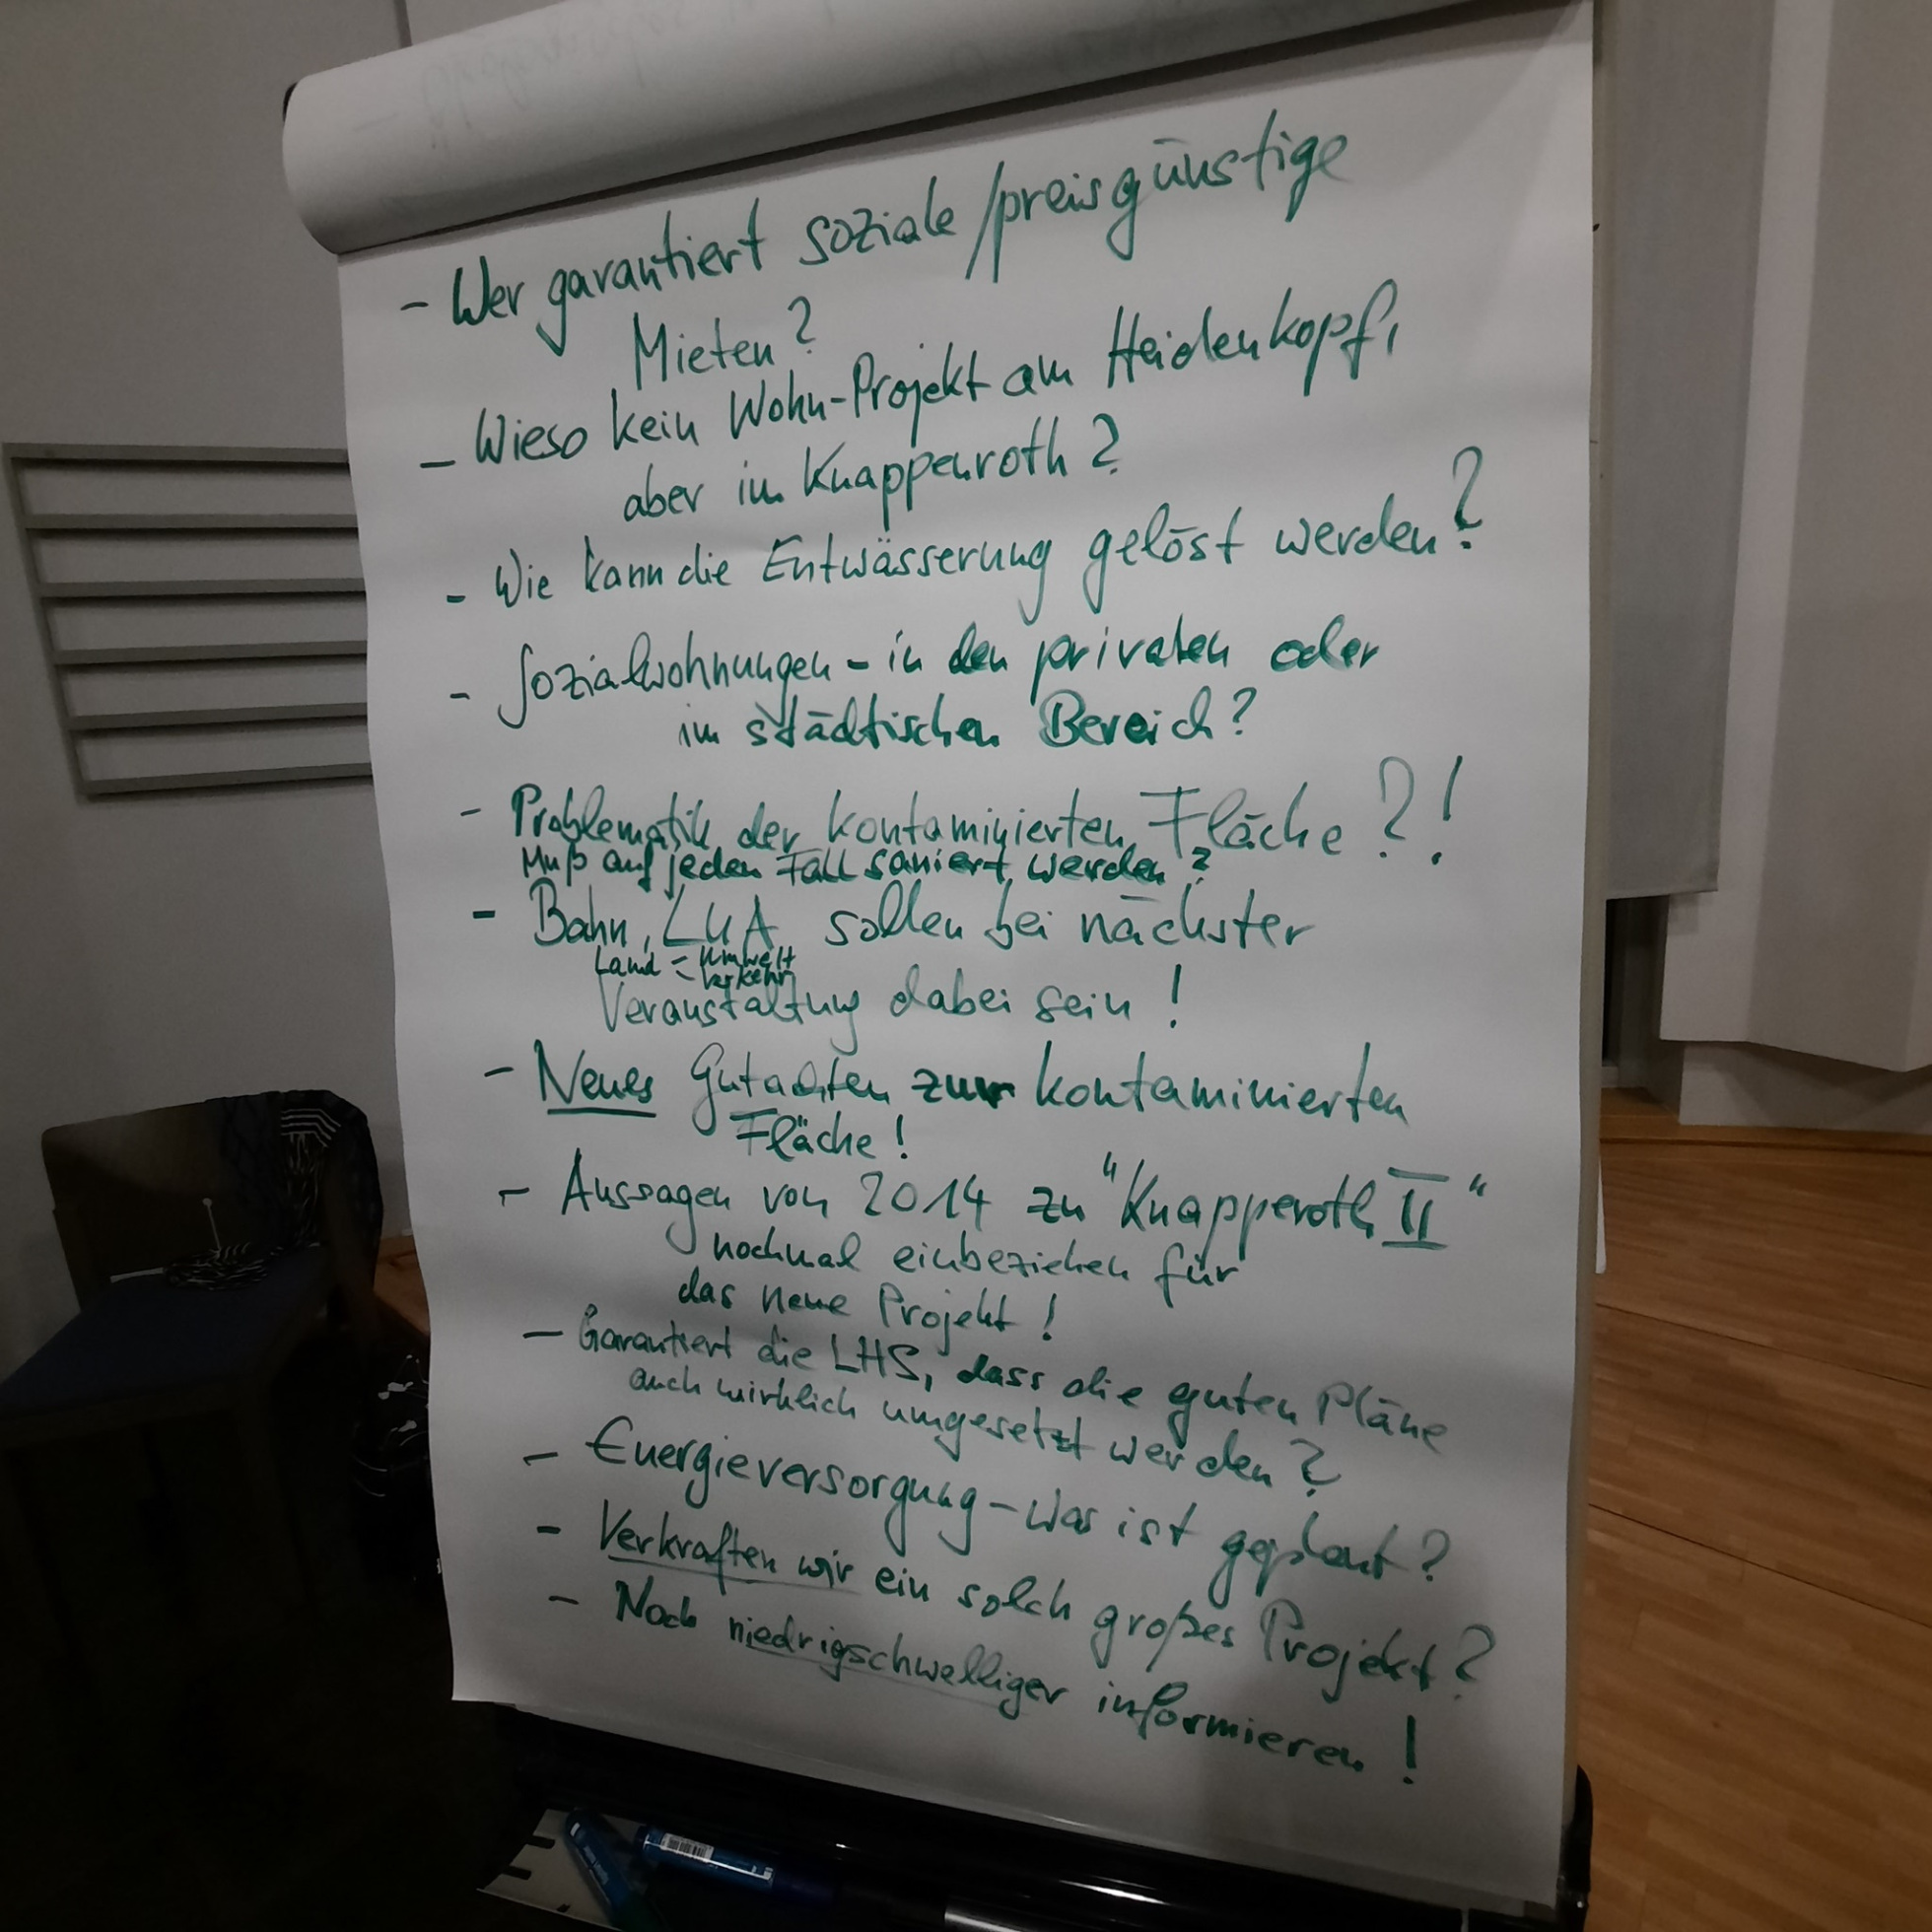 - Wer garantiert soziale/preisgünstige
Mieten?
- Wieso kein Wohn-Projekt am Heidenkopf,
aber im Knappenroth?
- Wie kann die Entwässerung gelöst werden?
- Sozialwohnungen - in den privaten oder
im städtischen Bereich?
- Problematik der kontaminierten Fläche?!
Muß auf jeden Fall saniert werden?
- Bahn, LUA sollen bei nächster
Land = Umwelt
Verkehr
Veranstaltung dabei sein!
- Neues Gutachten zur kontaminierten
Fläche!
- Aussagen von 2014 zu "Knapperoth II"
nochmal einbeziehen für
das neue Projekt!
- Garantiert die LHS, dass die guten Pläne
auch wirklich umgesetzt werden?
- Energieversorgung - was ist geplant?
- Verkraften wir ein solch großes Projekt?
- Noch niedrigschwelliger informieren!